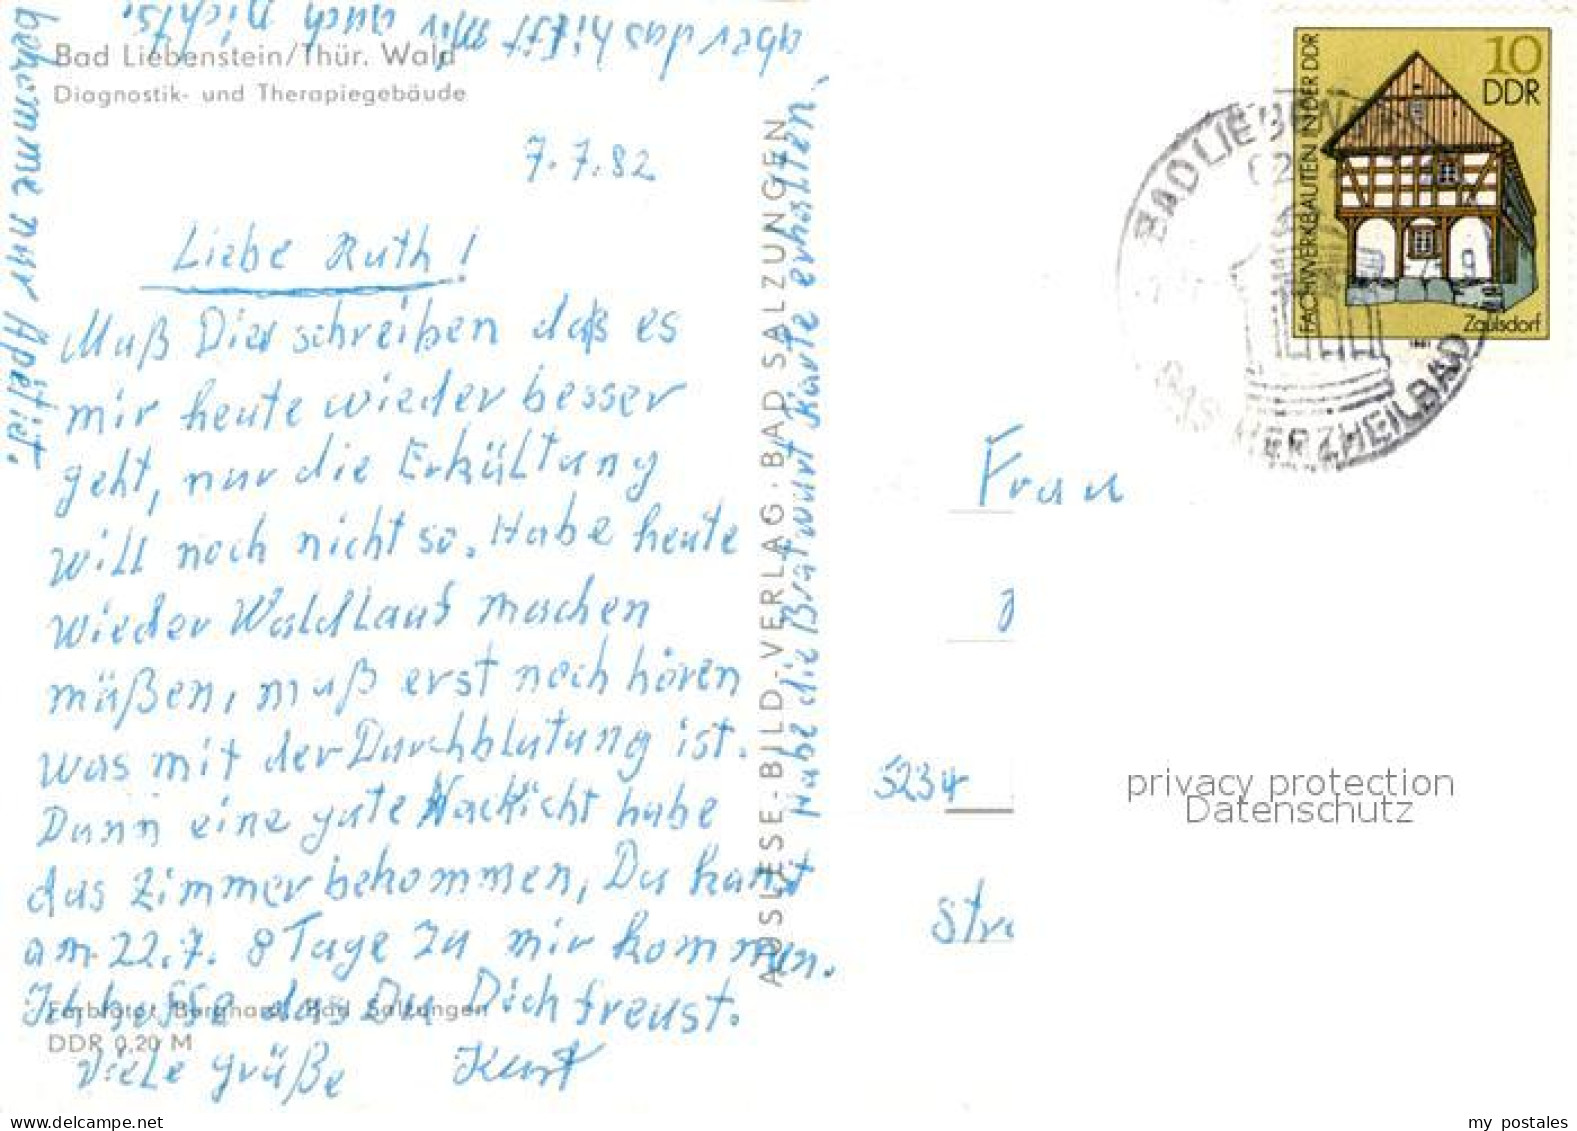 Bad Liebenstein/Thür. Wald
Diagnostik- und Therapiegebäude
7.7.82
Liebe Ruth!
Muß Dier schreiben daß es
mir heute wieder besser
geht, nur die Erkültung
will noch nicht so. Habe heute
wieder Waldlauf machen
müßen, muß erst noch hören
was mit der Durchblutung ist.
Dann eine gute Nachicht habe
das Zimmer bekommen, Du kanst
am 22.7. 8 Tage zu mir kommen.
Ich hoffe das Du Dich freust.
Viele grüße Kurt
Habe die Bratwurt Karte erhalten,
aber das hilft mir auch nichts.
bekomme nur Apetit.
Farbfoto: Burghard, Bad Salzungen
DDR 0,20 M
AUSLESE-BILD-VERLAG · BAD SALZUNGEN
10
DDR
FACHWERKBAUTEN IN DER DDR
Zaulsdorf
1981
BAD LIEBEN
62
DAS HERZHEILBAD
Frau
5234
Str
privacy protection
Datenschutz
my postales